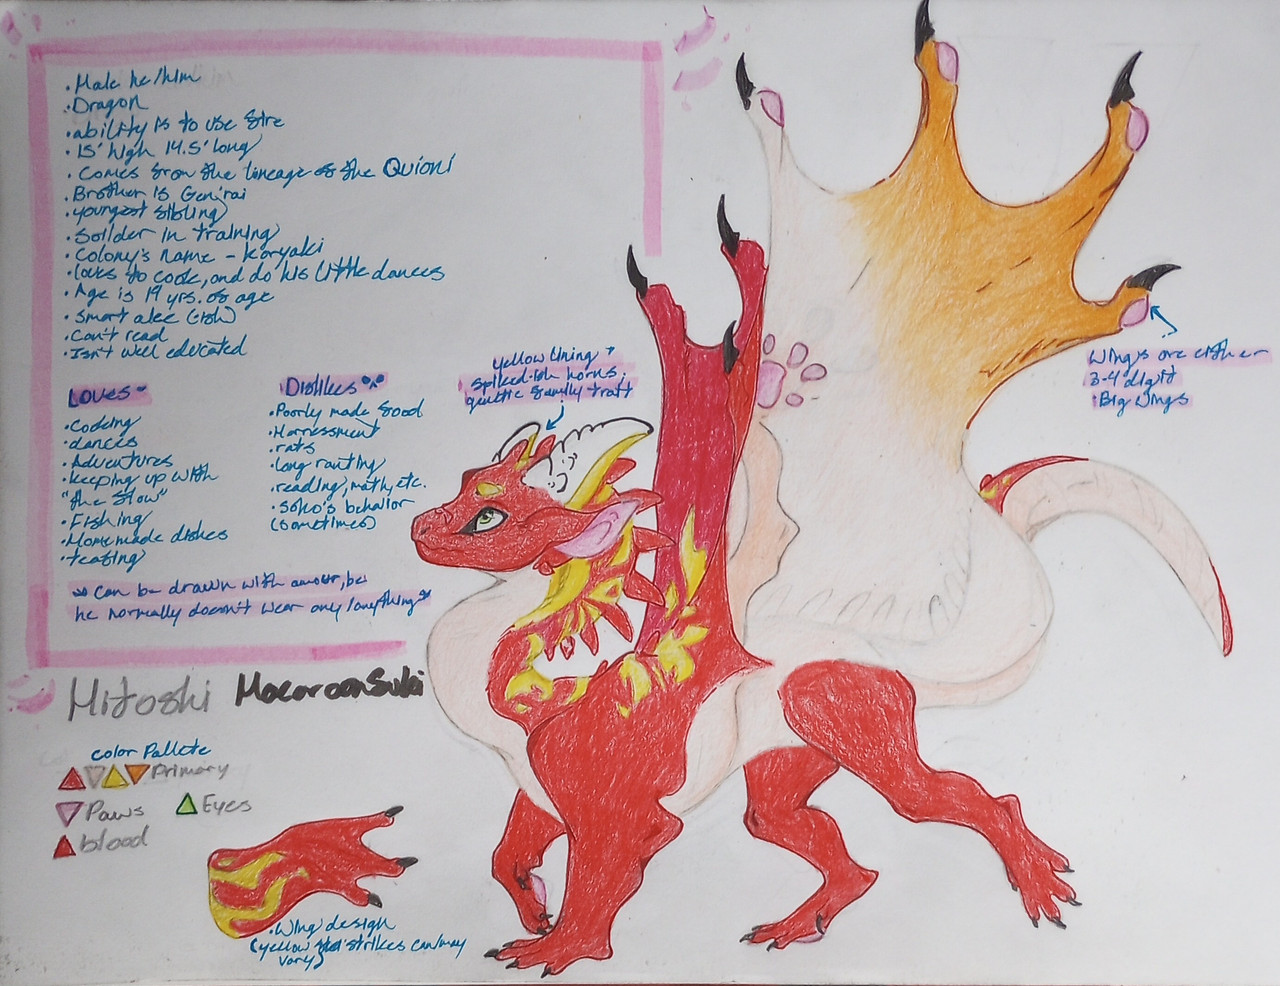 • Male he/him
• Dragon
• ability is to use fire
• 15' high 14.5' long
• Comes from the lineage of the Quioni
• Brother is Gen'rai
• youngest sibling
• Soilder in training
• Colony's name - Koryaki
• loves to cook, and do his little dances
• Age is 19 yrs. of age
• Smart alec (ish)
• Can't read
• Isn't well educated
Loves
• Cooking
• dances
• Adventures
• keeping up with
"the flow"
• Fishing
• Homemade dishes
• teasing
Dislikes
• Poorly made food
• Harressment
• rats
• long ranting
• reading, math, etc.
• Soko's behaior
(sometimes)
Can be drawn with amour, but
he normally doesn't wear any/anything
yellow lining
spiked-ish horns,
genetic family trait
Wings are either
3-4 digit
• Big wings
Mitoshi MacaroonSuki
color Pallete
Primary
Paws Eyes
blood
• Wing design
(yellow strikes can/may
vary)